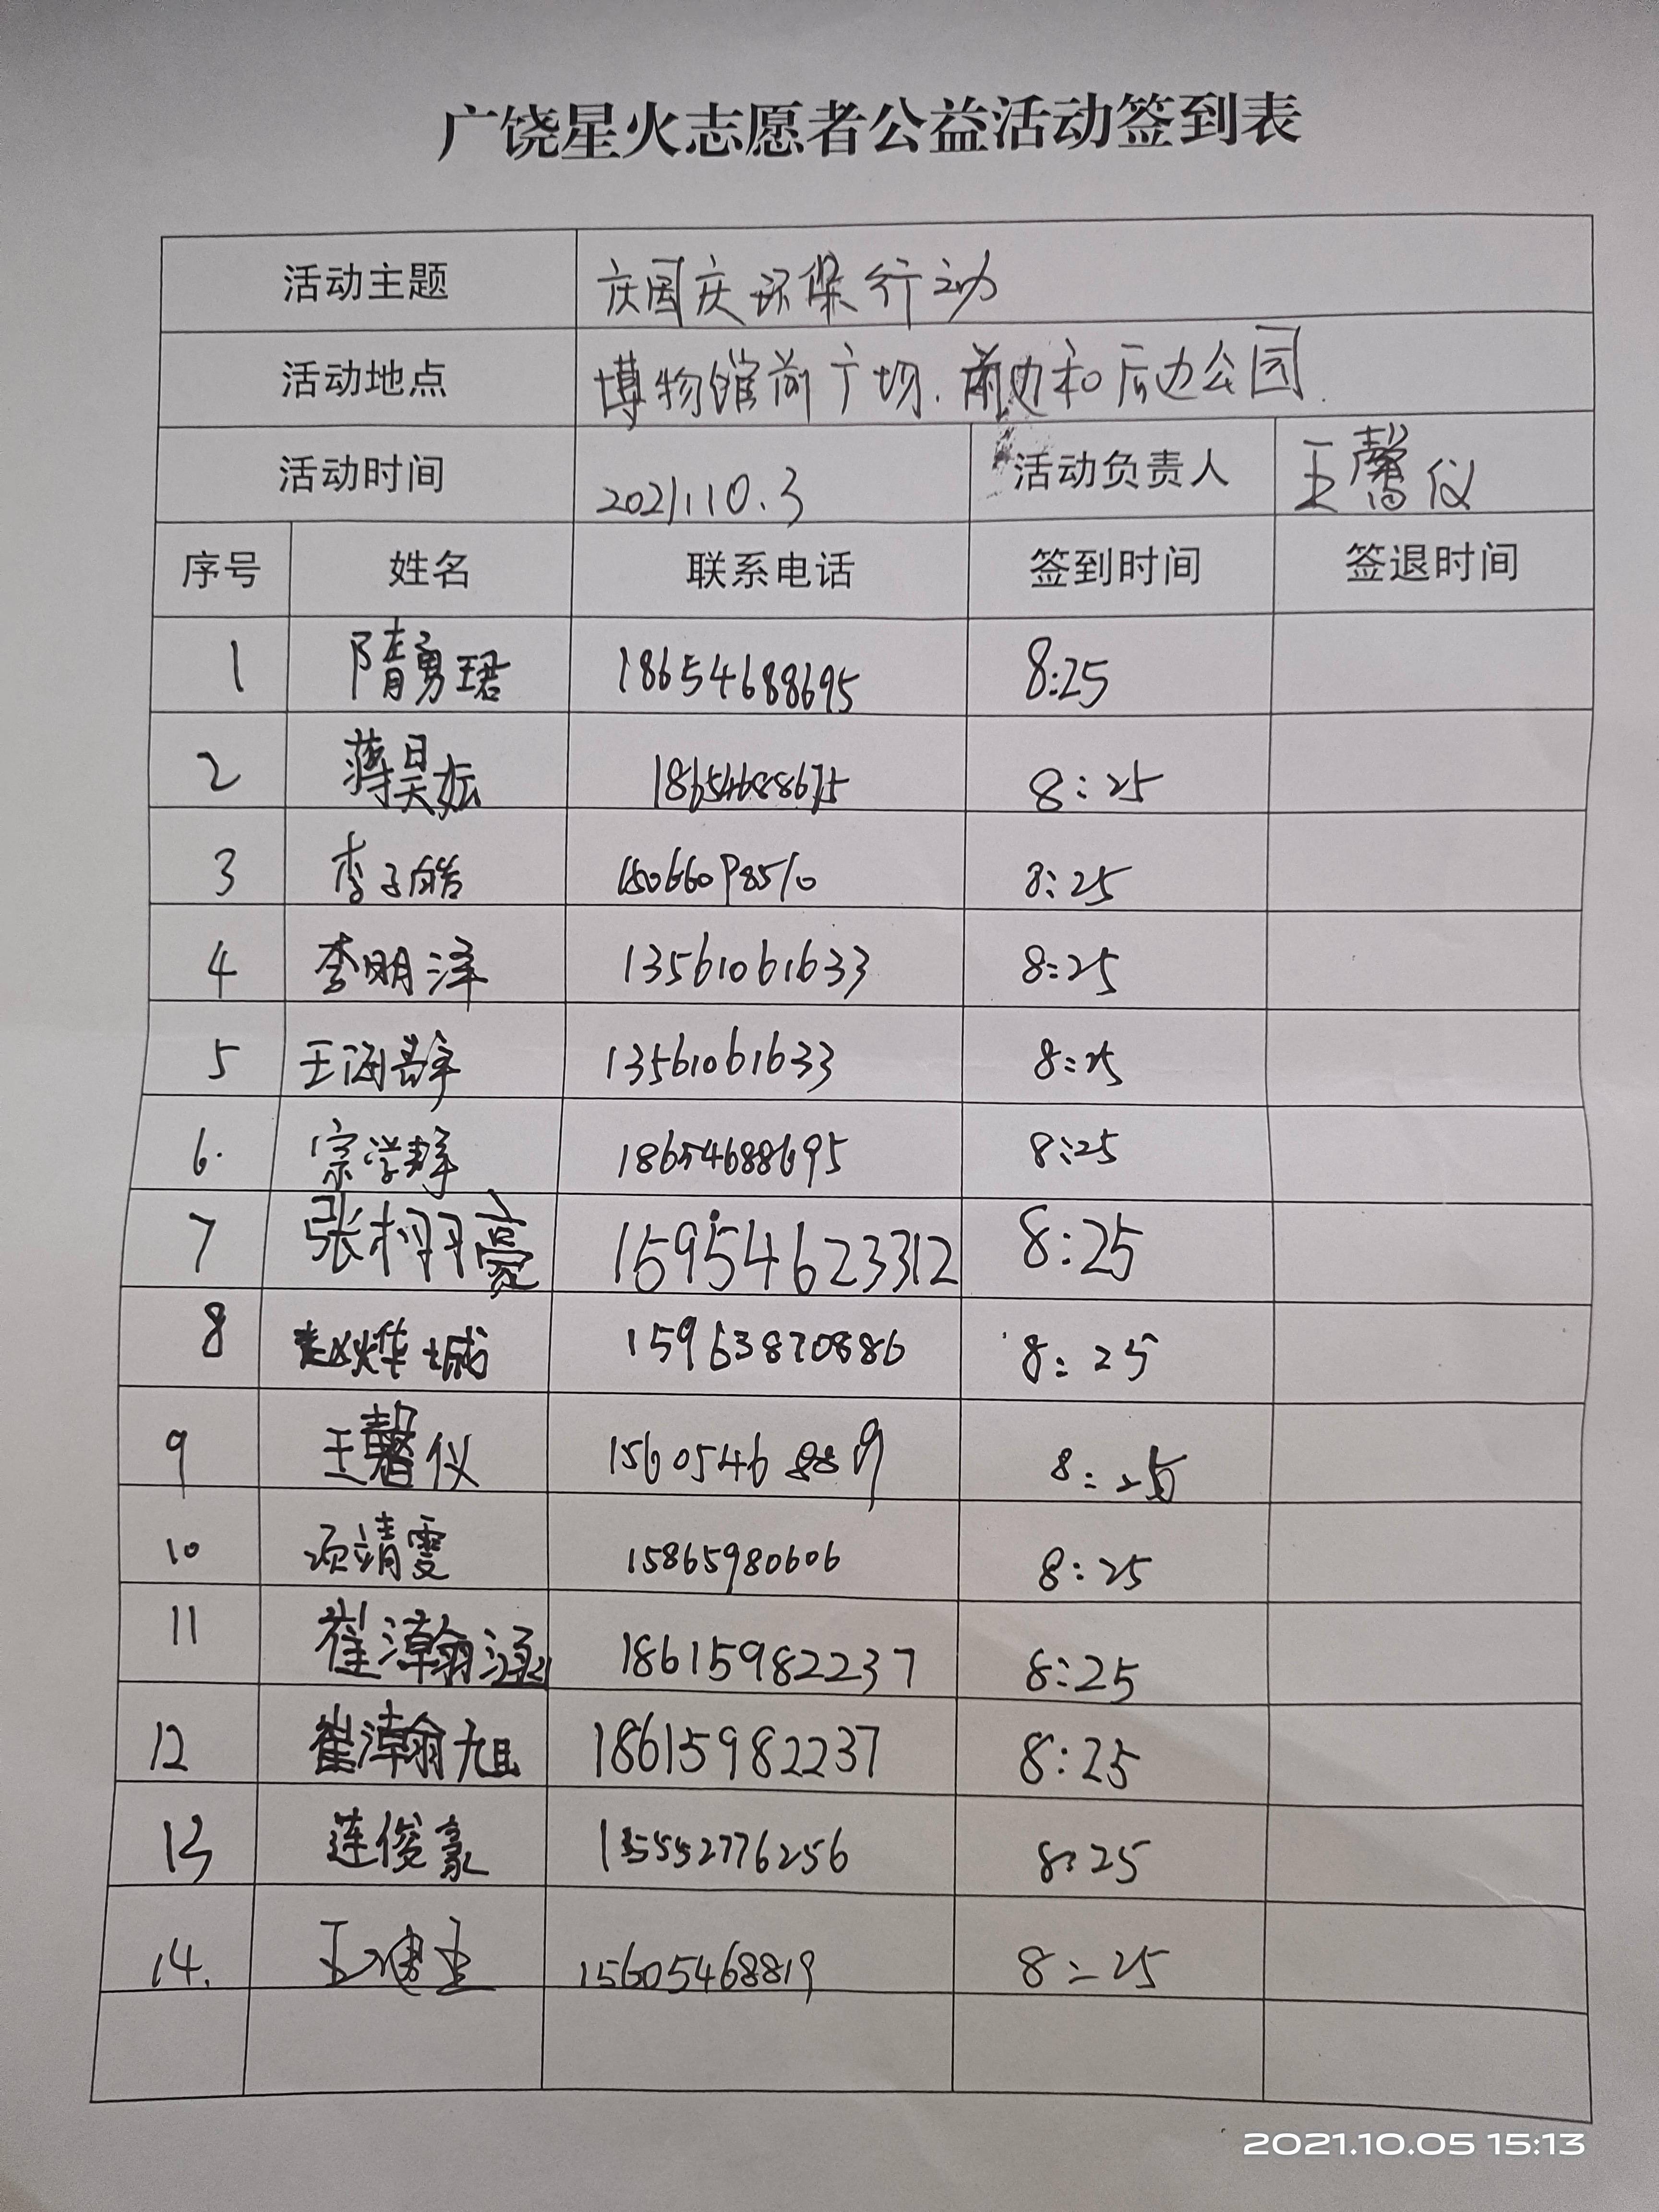 广饶星火志愿者公益活动签到表
活动主题 庆国庆环保行动
活动地点 博物馆前广场.前边和后边公园.
活动时间 2021.10.3 活动负责人 王馨仪
序号 姓名 联系电话 签到时间 签退时间
1 隋勇珺 18654688695 8:25
2 蒋昊妘 8:25
3 李子皓 15066098510 8:25
4 李明泽 13561061633 8:25
5 王涵 13561061633 8:25
6. 宗学群 18654688695 8:25
7 张栩亮 15954623312 8:25
8 赵烨城 15963870886 8:25
9 王馨仪 15605468819 8:25
10 项靖雯 15865980606 8:25
11 崔瀚涵 18615982237 8:25
12 崔瀚旭 18615982237 8:25
13 莲俊豪 15552776256 8:25
14. 王 15605468819 8:25
2021.10.05 15:13